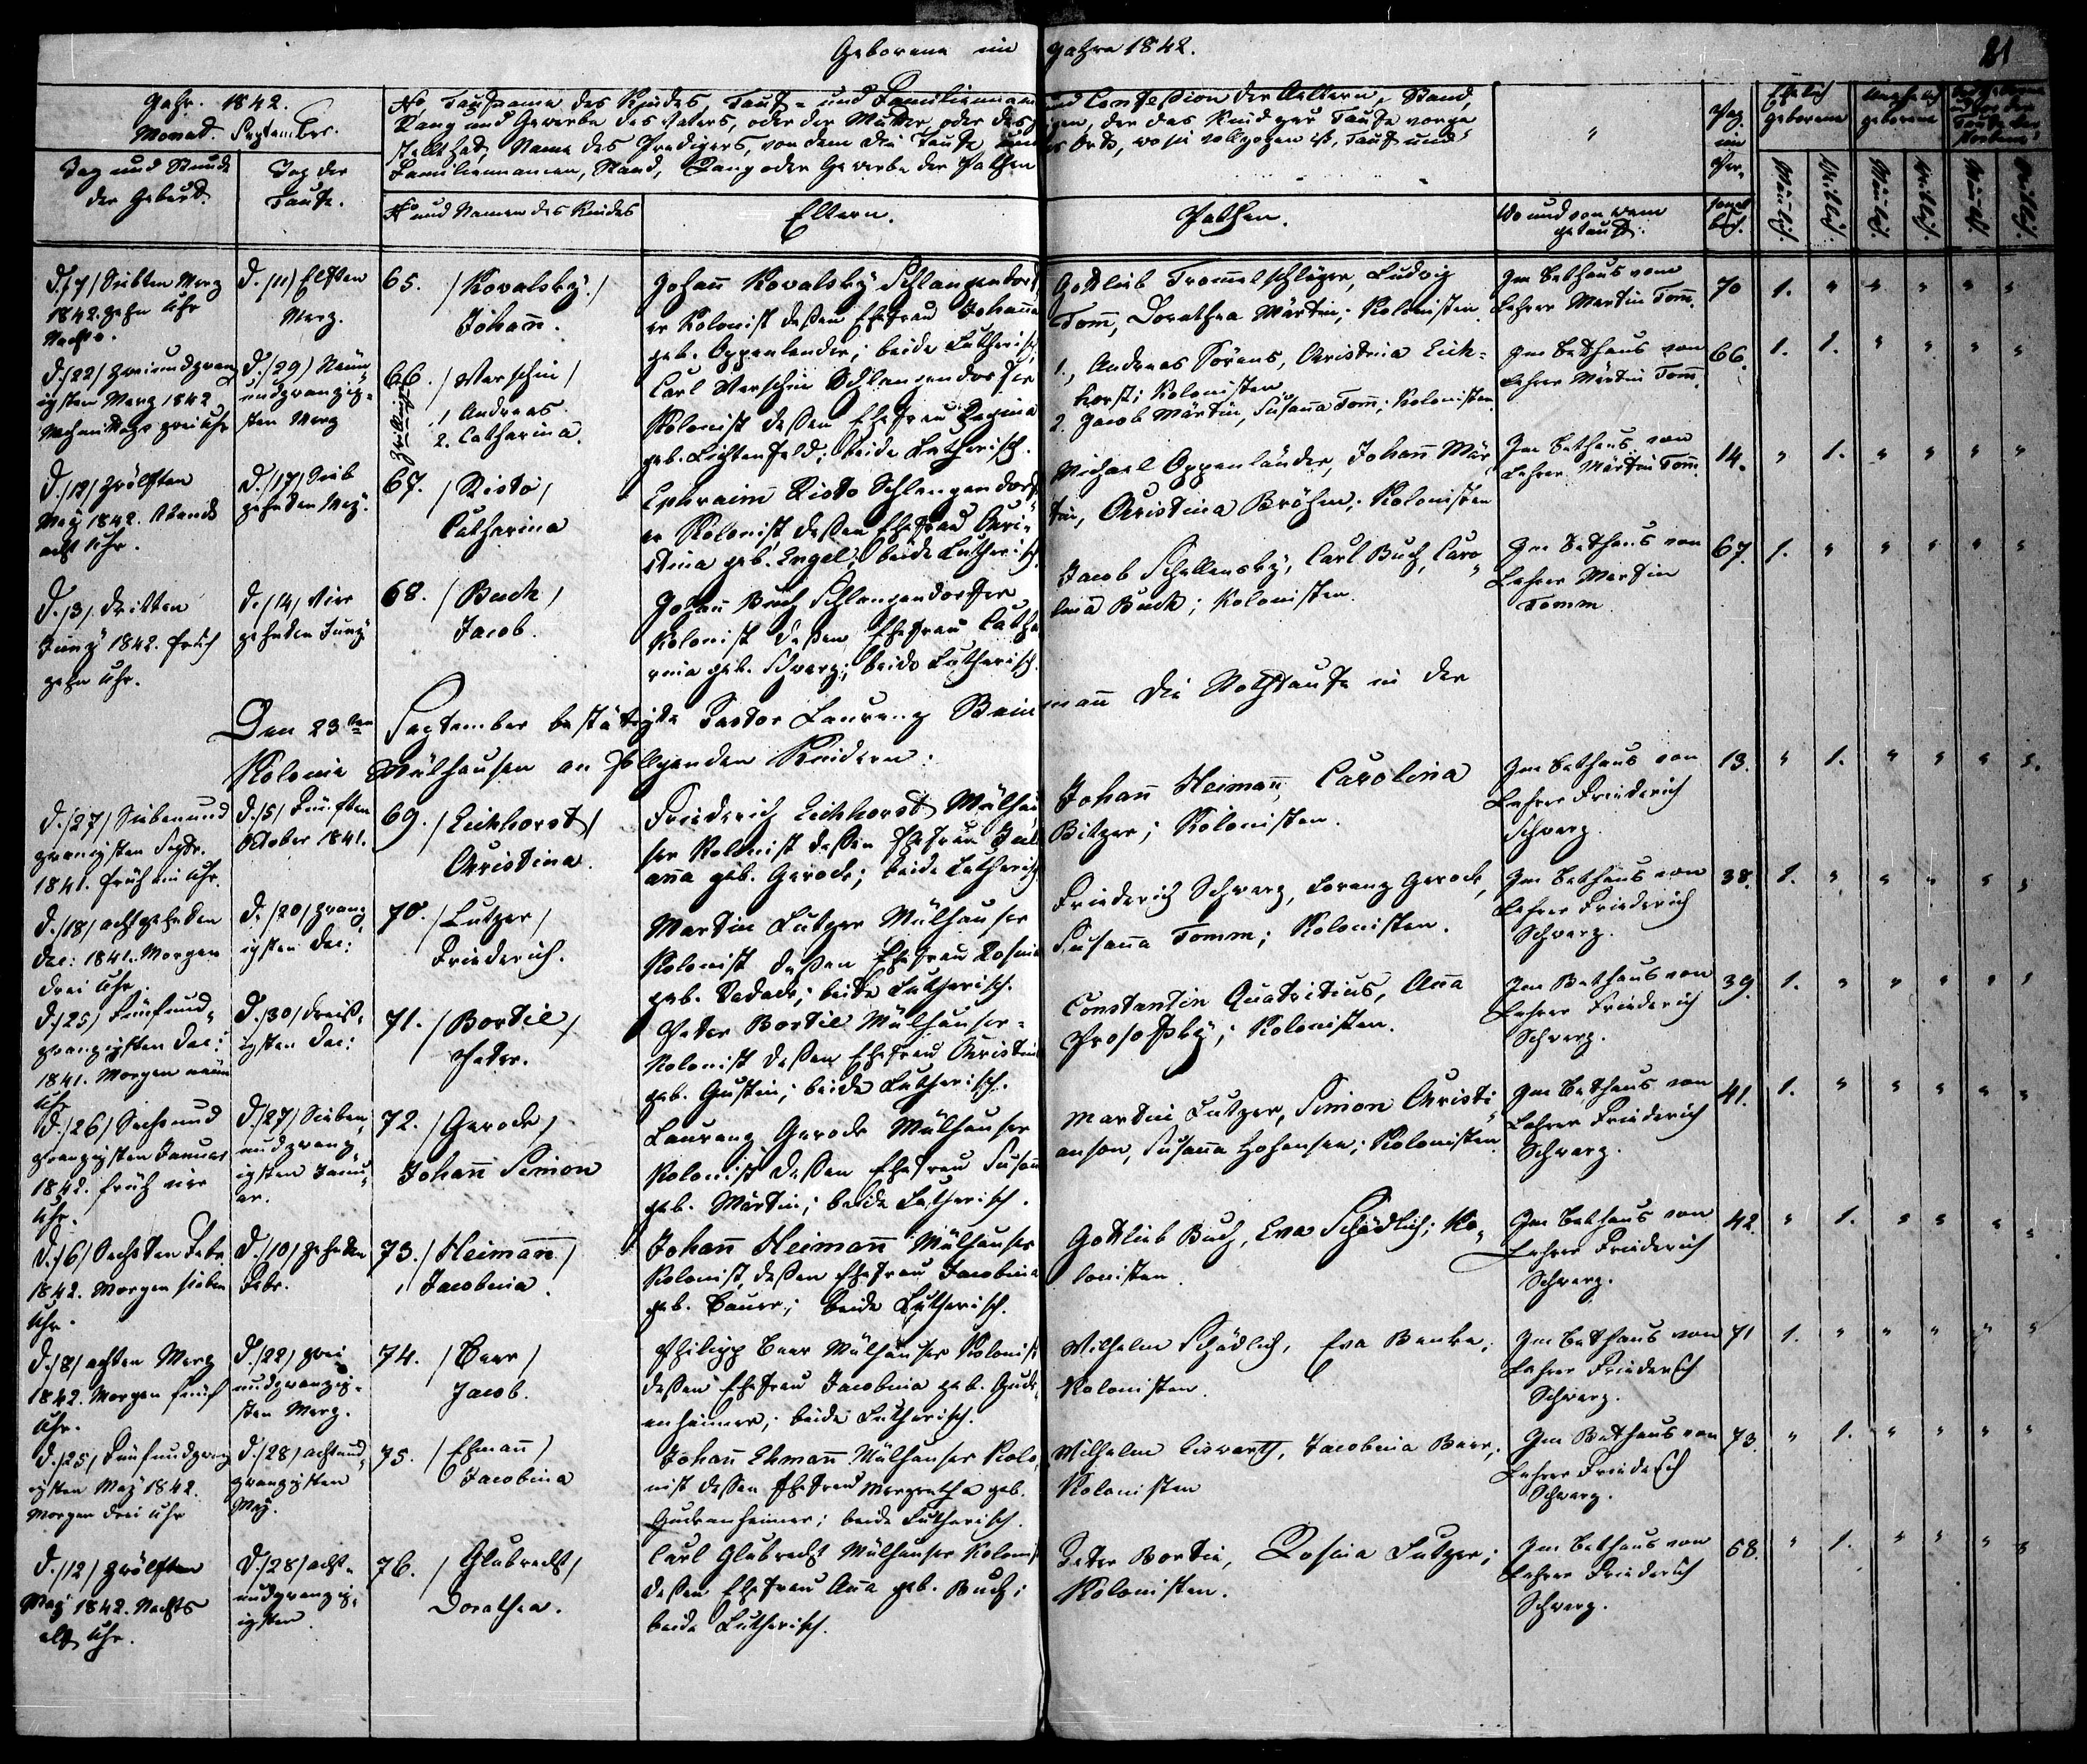 Geborene im Jahre 1842.
21
Jahr. 1842.
Monat September.
No, Taufname des Kindes, Tauf- und Familiennamen und Confeßion der Aeltern, Stand,
Rang und Gewerbe des Vaters, oder der Mutter oder desjenigen, der das Kind zur Taufe vorge
stellt hat, Name des Predigers, von dem die Taufe und des Orts, wo sie vollzogen ist, Tauf und
Familiennamen, Stand, Rang oder Gewerbe der Pathen
Ehelich geborene
Unehelich geborene
Tag und Stunde der Geburt.
Tag der Taufe.
No und Namen des Kindes
Eltern.
Pathen.
Wo und von wem getauft.
Männlich.
Weiblich.
Männlich.
Weiblich.
Männlich.
Weiblich.
D. /7/ Siebten Merz
1842. zehn Uhr
Nachts.
D. /11/ Elften
Merz.
65. /Kovalsky/
Johann̄.
Johan̄ Kovalsky Schlangendorf
er Kolonist deßen Ehefrau Johan̄a
geb. Oppenlender; beide Lutherisch
Gottlieb Trom̄elschläger, Ludwig
Tom̄, Dorathea Märtin; Kolonisten.
Im Bethaus vom
Lehrer Martin Tom̄.
70 1. " " " " "
D. /22/ zweiundzwanz
igsten Merz 1842
Nachmittags zwei Uhr
D. /29/ Neun
undzwanzig-
sten Merz
66. /Werschin/
Zwillinge
1 Andreas
2. Catharina.
Carl Werschin Schlangendorfer
Kolonist deßen Ehefrau Regina
geb. Lichtenfeld; beide Lutherisch.
1, Andreas Sörens, Christina Eich-
horst; Kolonisten
2. Jacob Märtin, Susan̄a Tom̄; Kolonisten
Im Bethaus von
Lehrer Märtin Tom̄.
66. 1. 1. " " " "
D. /12/ zwölften
May 1842. Abends
acht Uhr.
D. /17/ Sieb
zehnten May.
67. /Risto/
Catharina
Ephraim Risto Schlangendorf
er Kolonist deßen Ehefrau Chri-
stina geb. Engel; beide Lutherisch
Michael Oppenländer, Johan̄ Mär
tin, Christina Bröhm; Kolonisten
Im Bethaus von
Lehrer Märtin Tom̄.
14. " 1. " " " "
D. /3/. dritten
Juny 1842. früh
zehn Uhr.
D. /14/ Vier
zehnten Juny
68. /Buch/
Jacob.
Johan̄ Buch Schlangendorfer
Kolonist deßen Ehefrau Catha
rina geb. Schwarz; beide Lutherisch.
Jacob Schellensky, Carl Buch, Caro
lina Buch; Kolonisten.
Im Bethaus von
Lehrer Martin
Tomm
67. 1. " " " " "
Den 23ten September bestätigte Pastor Laurenz Bein man̄ die Nothtaufe in der
Kolonie Mülhausen an folgenden Kindern:
D. /27/ Siebenund
zwanzigsten Septr.
1841. früh ein Uhr.
D. /5/ Fünften
October 1841.
69. /Eichhorst/
Christina.
Friederich Eichhorst Mülhau
ser Kolonist deßen Ehefrau Juli
an̄a geb. Gerock; beide Lutherisch
Johan̄ Heiman̄, Carolina
Bitzer; Kolonisten.
Im Bethaus von
Lehrer Friederich
Schwarz.
13. " 1. " " " "
D. /18/ achtzehnten
Dec: 1841. Morgen
drei Uhr.
D. /20/ zwanz
igsten Dec:
70. /Lutzer/
Friederich.
Martin Lutzer Mülhauser
Kolonist deßen Ehefrau Rosina
geb. Radack; beide Lutherisch.
Friederich Schwarz, Lorenz Gerock,
Susan̄a Tomm; Kolonisten.
Im Bethaus von
Lehrer Friederich
Schwarz.
38. 1. " " " " "
D. /25/ Fünfund-
zwanzigsten Dec:
1841. Morgen neun
Uhr
D. /30/ dreiß-
igsten Dec:
71. /Bortie/
Peter.
Peter Bortie Mülhauser-
Kolonist deßen Ehefrau Christina
geb. Gustin; beide Lutherisch.
Constantin Quatritius, An̄a
Prosofsky; Kolonisten.
Im Bethaus von
Lehrer Friederich
Schwarz.
39. 1. " " " " "
D. /26/ Sechsund
zwanzigsten Januar
1842. früh vier
Uhr.
D. /27/ Sieben
undzwanz
igsten Janu-
ar.
72. /Gerock/
Johan̄ Simon
Laurenz Gerock Mülhauser
Kolonist deßen Ehefrau Susan̄
geb. Märtin; beide Lutherisch.
Martin Lutzer, Simon Christi
anson, Susan̄a Hohensee; Kolonisten.
Im Bethaus von
Lehrer Friederich
Schwarz.
41. 1. " " " " "
D. /6/ Sechsten Febr.
1842. Morgen sieben
Uhr.
D. /10/ zehnten
Febr.
73. /Heiman̄/
Jacobina.
Johan̄ Heiman̄ Mülhauser
Kolonist, deßen Ehefrau Jacobina
geb. Bauer; beide Lutherisch.
Gottlieb Buch, Eva Schädlich; Ko-
lonisten.
Im Bethaus von
Lehrer Friederich
Schwarz.
42. " 1. " " " "
D. /8/ achten Merz
1842. Morgen fünf
Uhr.
D. /22/ zwei
undzwanzig-
sten Merz.
74. /Beer/
Jacob.
Philipp Beer Mülhauser Kolonist
deßen Ehefrau Jacobina geb. Gude
enheimer; beide Lutherisch.
Wilhelm Schädlich, Eva Benke;
Kolonisten.
Im Bethaus von
Lehrer Friederich
Schwarz.
71 1. " " " " "
D. /25/ Fünfundzwanz
igsten May 1842.
Morgen drei Uhr
D. /28/ achtund
zwanzigsten
May.
75. /Ehman̄/
Jacobina
Johan̄ Ehman̄ Mülhauser Kolo-
nist deßen Ehefrau Margretha geb.
Gudranheimer; beide Lutherisch.
Wilhelm Eiswarth, Jacobina Beer;
Kolonisten
Im Bethaus von
Lehrer Friederich
Schwarz.
73. " 1. " " " "
D. /12/ zwölften
May 1842. Nachts
elf Uhr.
D. /28/ acht-
undzwanzig-
igsten
76. /Glubrecht/
Dorathea.
Carl Glubrecht Mülhauser Kolonist
deßen Ehefrau An̄a geb. Buch;
beide Lutherisch.
Peter Bortie, Rosina Lutzer;
Kolonisten.
Im Bethaus von
Lehrer Friederich
Schwarz.
68. " 1. " " " "